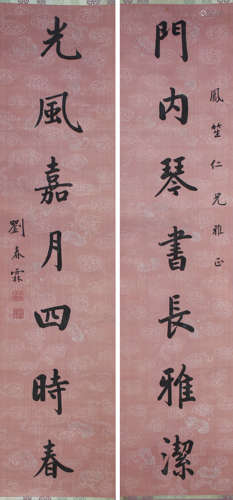 鳳笙仁兄雅正
門內琴書長雅潔
光風嘉月四時春
劉春霖